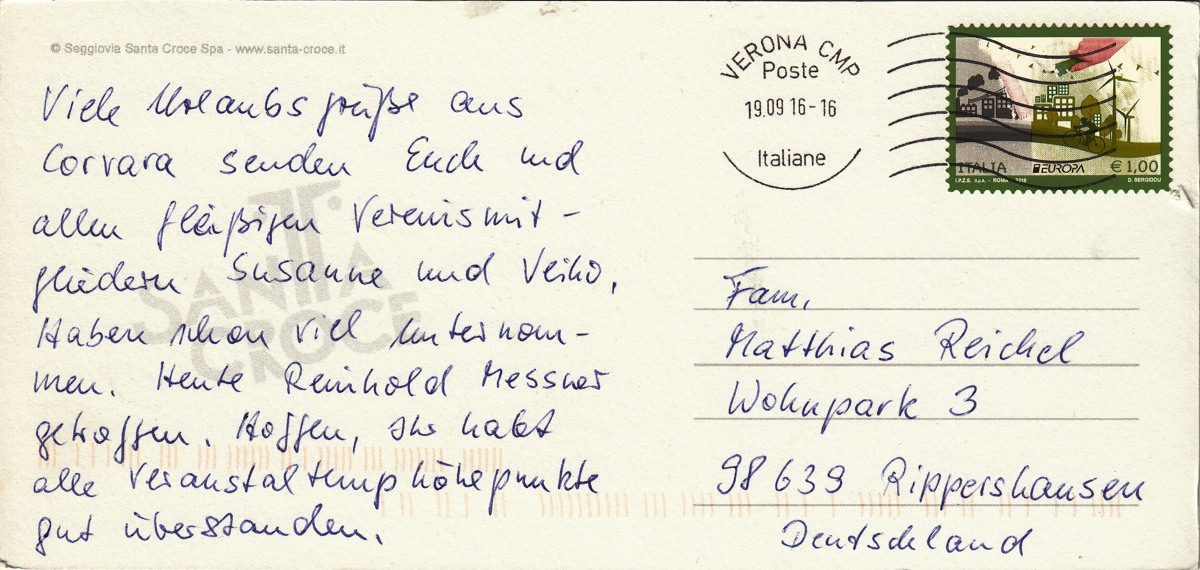 © Seggiovia Santa Croce Spa - www.santa-croce.it
Viele Urlaubsgrüße aus
Corvara senden Euch und
allen fleißigen Vereinsmit-
gliedern Susanne und Veiko.
Haben schon viel unternom-
men. Heute Reinhold Messner
getroffen. Hoffen, ihr habt
alle Veranstaltungshöhepunkte
gut überstanden.
SANTA
CROCE
VERONA CMP
Poste
19.09 16-16
Italiane
ITALIA
EUROPA
€ 1,00
I.P.Z.S. S.p.A. - ROMA - 2016
D. SERGIDOU
Fam.
Matthias Reichel
Wohnpark 3
98639 Rippershausen
Deutschland